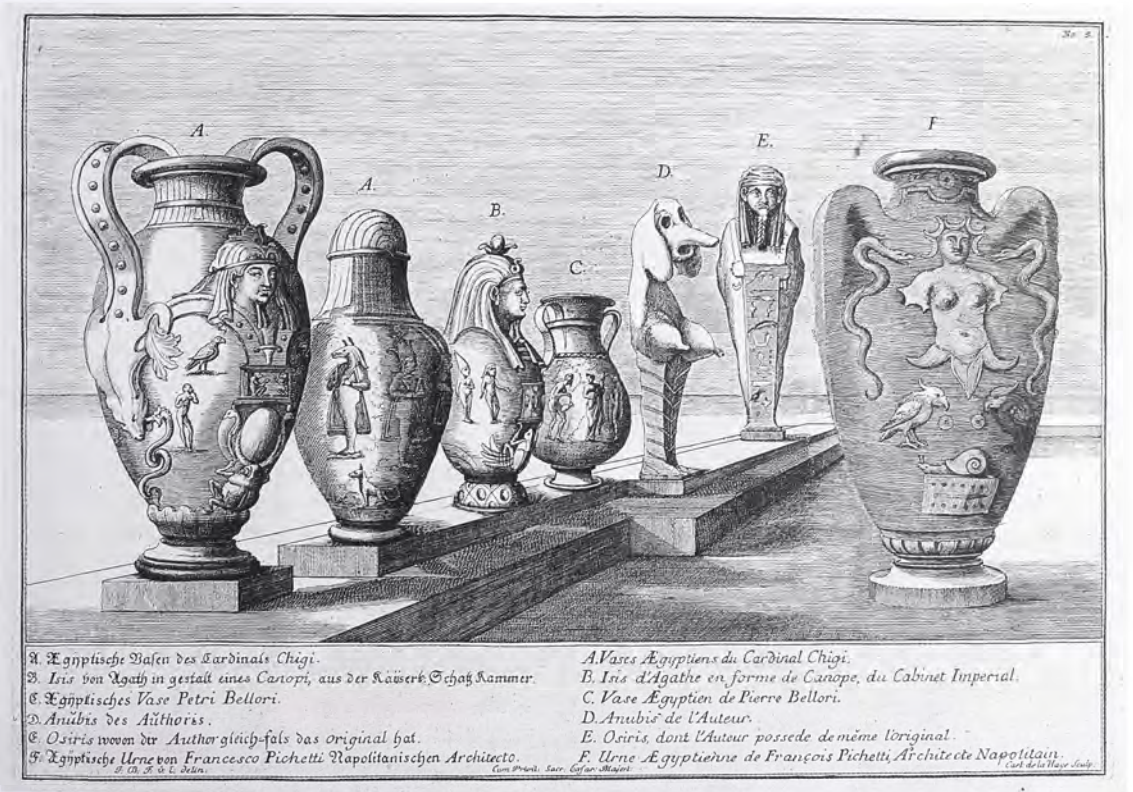 No 3.
A.
A.
B.
C.
D.
E.
F
A. Ægyptische Vasen des Cardinals Chigi.
B. Isis von Agath in gestalt eines Canopi, aus der Käÿserl. Schatz Kammer.
C. Ægÿptisches Vase Petri Bellori.
D. Anubis des Authoris.
E. Osiris wovon der Author gleich-fals das original hat.
F. Ægÿptische Urne von Francesco Pichetti Napolitanischen Architecto.
A. Vases Ægyptiens du Cardinal Chigi.
B. Isis d'Agathe en forme de Canope, du Cabinet Imperial.
C. Vase Ægyptien de Pierre Bellori.
D. Anubis de l'Auteur.
E. Osiris, dont l'Auteur possede de même l'original.
F. Urne Ægyptienne de François Pichetti, Architecte Napolitain.
J. B. F. v. E. delin.
Cum Privil. Sacr. Cæsar. Majest.
Carl de la Haye Sculp.